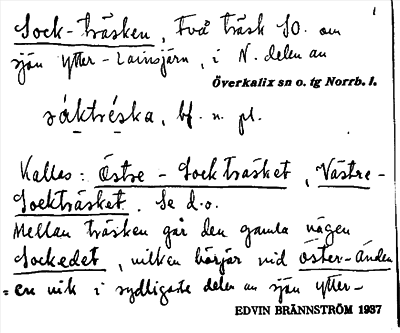 1
Sock-träsken, Två träsk SO. om
sjön Ytter-Lainsjärv, i N. delen av
Överkalix sn o. tg Norrb. l.
såktréska, bf. n. pl.
Kallas: Östre-Sockträsket, Västre-
Sockträsket. Se d.o.
Mellan träsken går den gamla vägen
Sockedet, vilken börjar vid Öster-Änden
= en vik i sydligaste delen av sjön Ytter-
EDVIN BRÄNNSTRÖM 1937